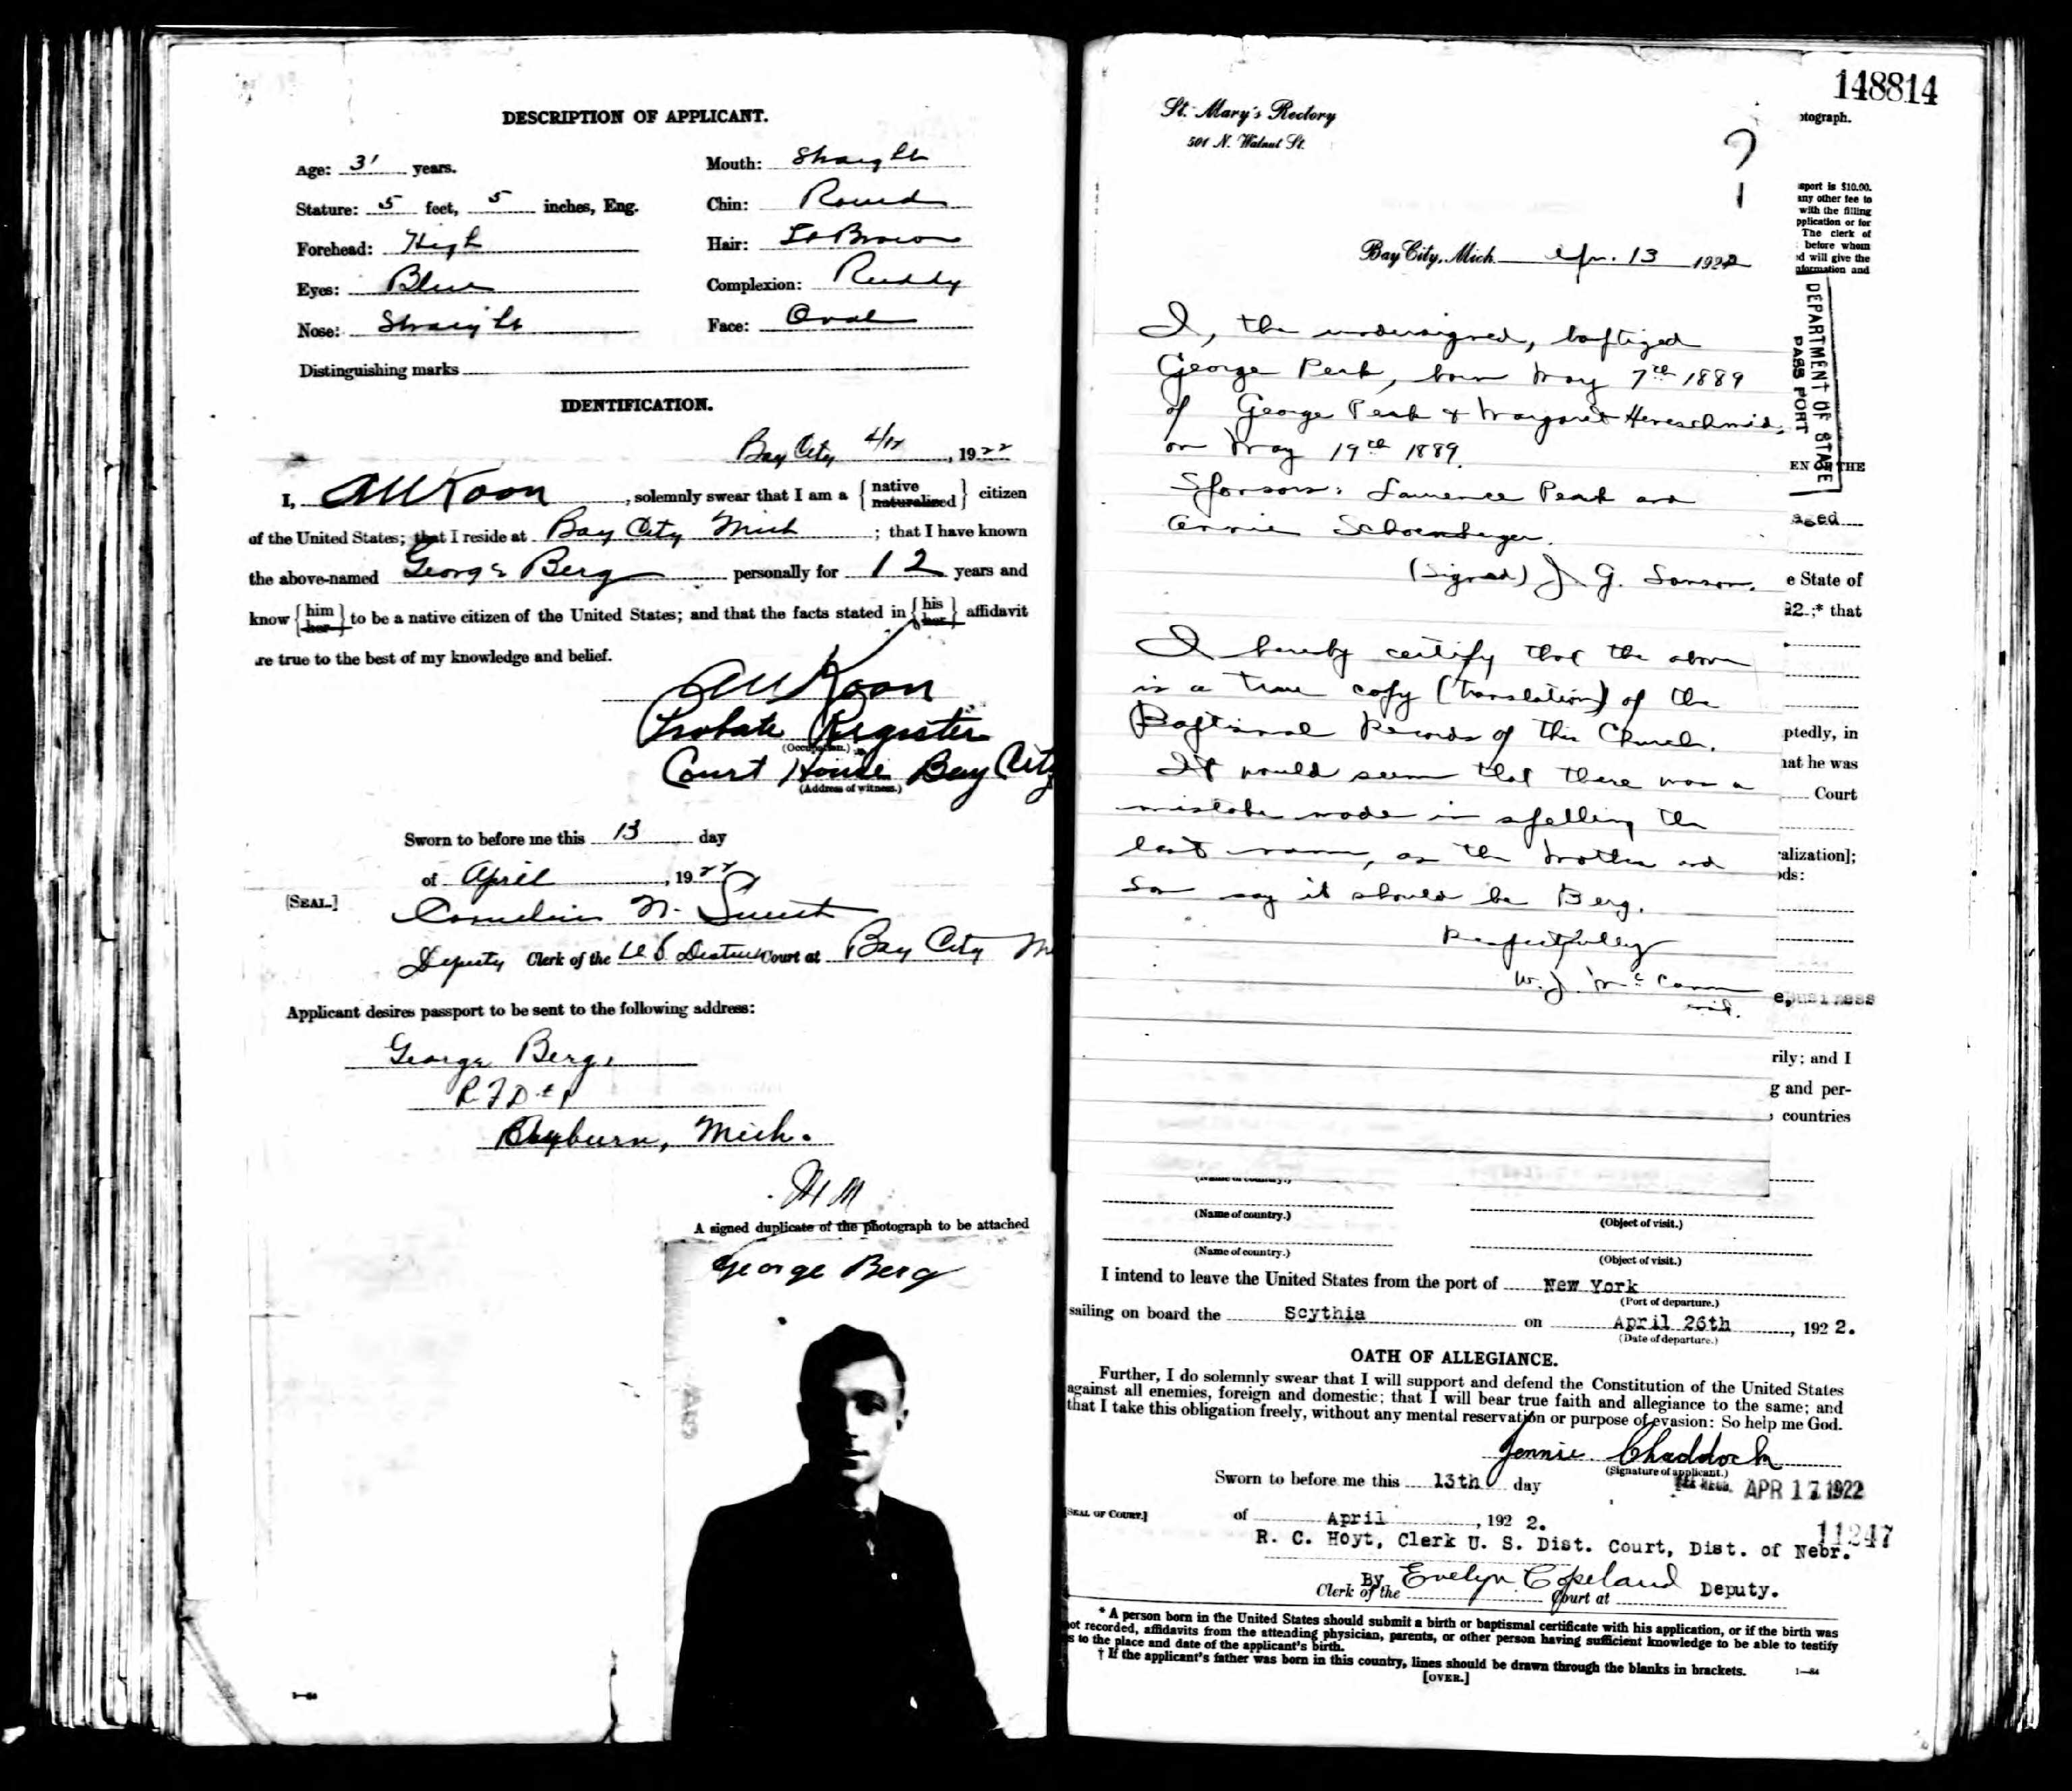 DESCRIPTION OF APPLICANT.
Age: 31 years.
Mouth: Straight
Stature: 5 feet, 5 inches, Eng.
Chin: Round
Forehead: High
Hair: Lt Brown
Eyes: Blue
Complexion: Ruddy
Nose: Straight
Face: Oval
Distinguishing marks
IDENTIFICATION.
Bay City 4/13, 1922
I, AW Koon, solemnly swear that I am a {native naturalized} citizen
of the United States; that I reside at Bay City Mich; that I have known
the above-named George Berg personally for 12 years and
know {him her} to be a native citizen of the United States; and that the facts stated in {his her} affidavit
re true to the best of my knowledge and belief.
AW Koon
Probate Register
(Occupation.)
Court House Bay City
(Address of witness.)
Sworn to before me this 13 day
of April, 1922
[SEAL.]
Deputy Clerk of the U S District Court at Bay City M
Applicant desires passport to be sent to the following address:
George Berg.
R F D # 1
Mich.
A signed duplicate of the photograph to be attached
George Berg
148814
St. Mary's Rectory
501 N. Walnut St.
?
1
Bay City, Mich. Apr. 13 1922
I, the undersigned, baptized
George Perk, born May 7th 1889
of George Perk & Margaret
on May 19th 1889.
Sponsors: Lawrence Perk and
Annie Schoenberger.
(Signed) J. G. Sanson.
I hereby certify that the above
is a true copy (translation) of the
Baptismal Records of this Church.
It would seem that there was a
mistake made in spelling the
last name, as the mother and
son say it should be Berg.
Respectfully
W. J. McCann
otograph.
sport is $10.00.
any other fee to
with the filling
pplication or for
The clerk of
before whom
d will give the
nformation and
DEPARTMENT OF STATE
PASSPORT
EN OF THE
aged
e State of
22 ;* that
ptedly, in
hat he was
Court
alization];
ds:
e, business
rily; and I
g and per-
countries
(Name of country.)
(Name of country.) (Object of visit.)
(Name of country.) (Object of visit.)
I intend to leave the United States from the port of New York
(Port of departure.)
sailing on board the Scythia on April 26th, 1922.
(Date of departure.)
OATH OF ALLEGIANCE.
Further, I do solemnly swear that I will support and defend the Constitution of the United States
against all enemies, foreign and domestic; that I will bear true faith and allegiance to the same; and
that I take this obligation freely, without any mental reservation or purpose of evasion: So help me God.
Jennie Chaddock
(Signature of applicant.)
Sworn to before me this 13th day
APR 17 1922
[SEAL OF COURT.]
of April, 1922.
11247
R. C. Hoyt, Clerk U. S. Dist. Court, Dist. of Nebr.
By Evelyn Copeland Deputy.
Clerk of the Court at
* A person born in the United States should submit a birth or baptismal certificate with his application, or if the birth was
not recorded, affidavits from the attending physician, parents, or other person having sufficient knowledge to be able to testify
s to the place and date of the applicant's birth.
† If the applicant's father was born in this country, lines should be drawn through the blanks in brackets.
1—84
[OVER.]